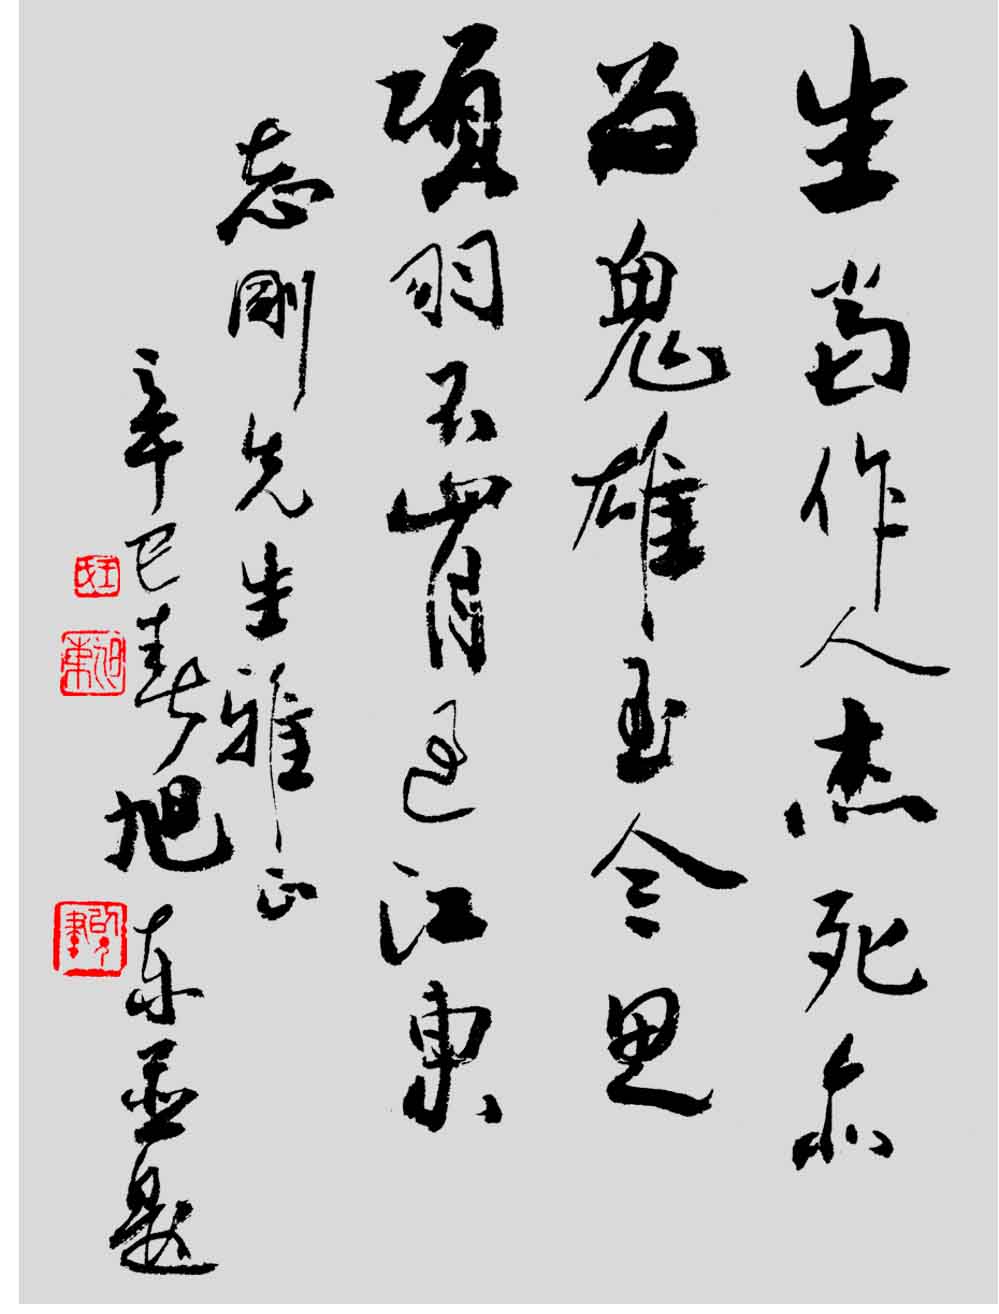 生當作人杰死亦
为鬼雄至今思
項羽不肯过江東
志剛先生雅正
辛巳春旭东并题